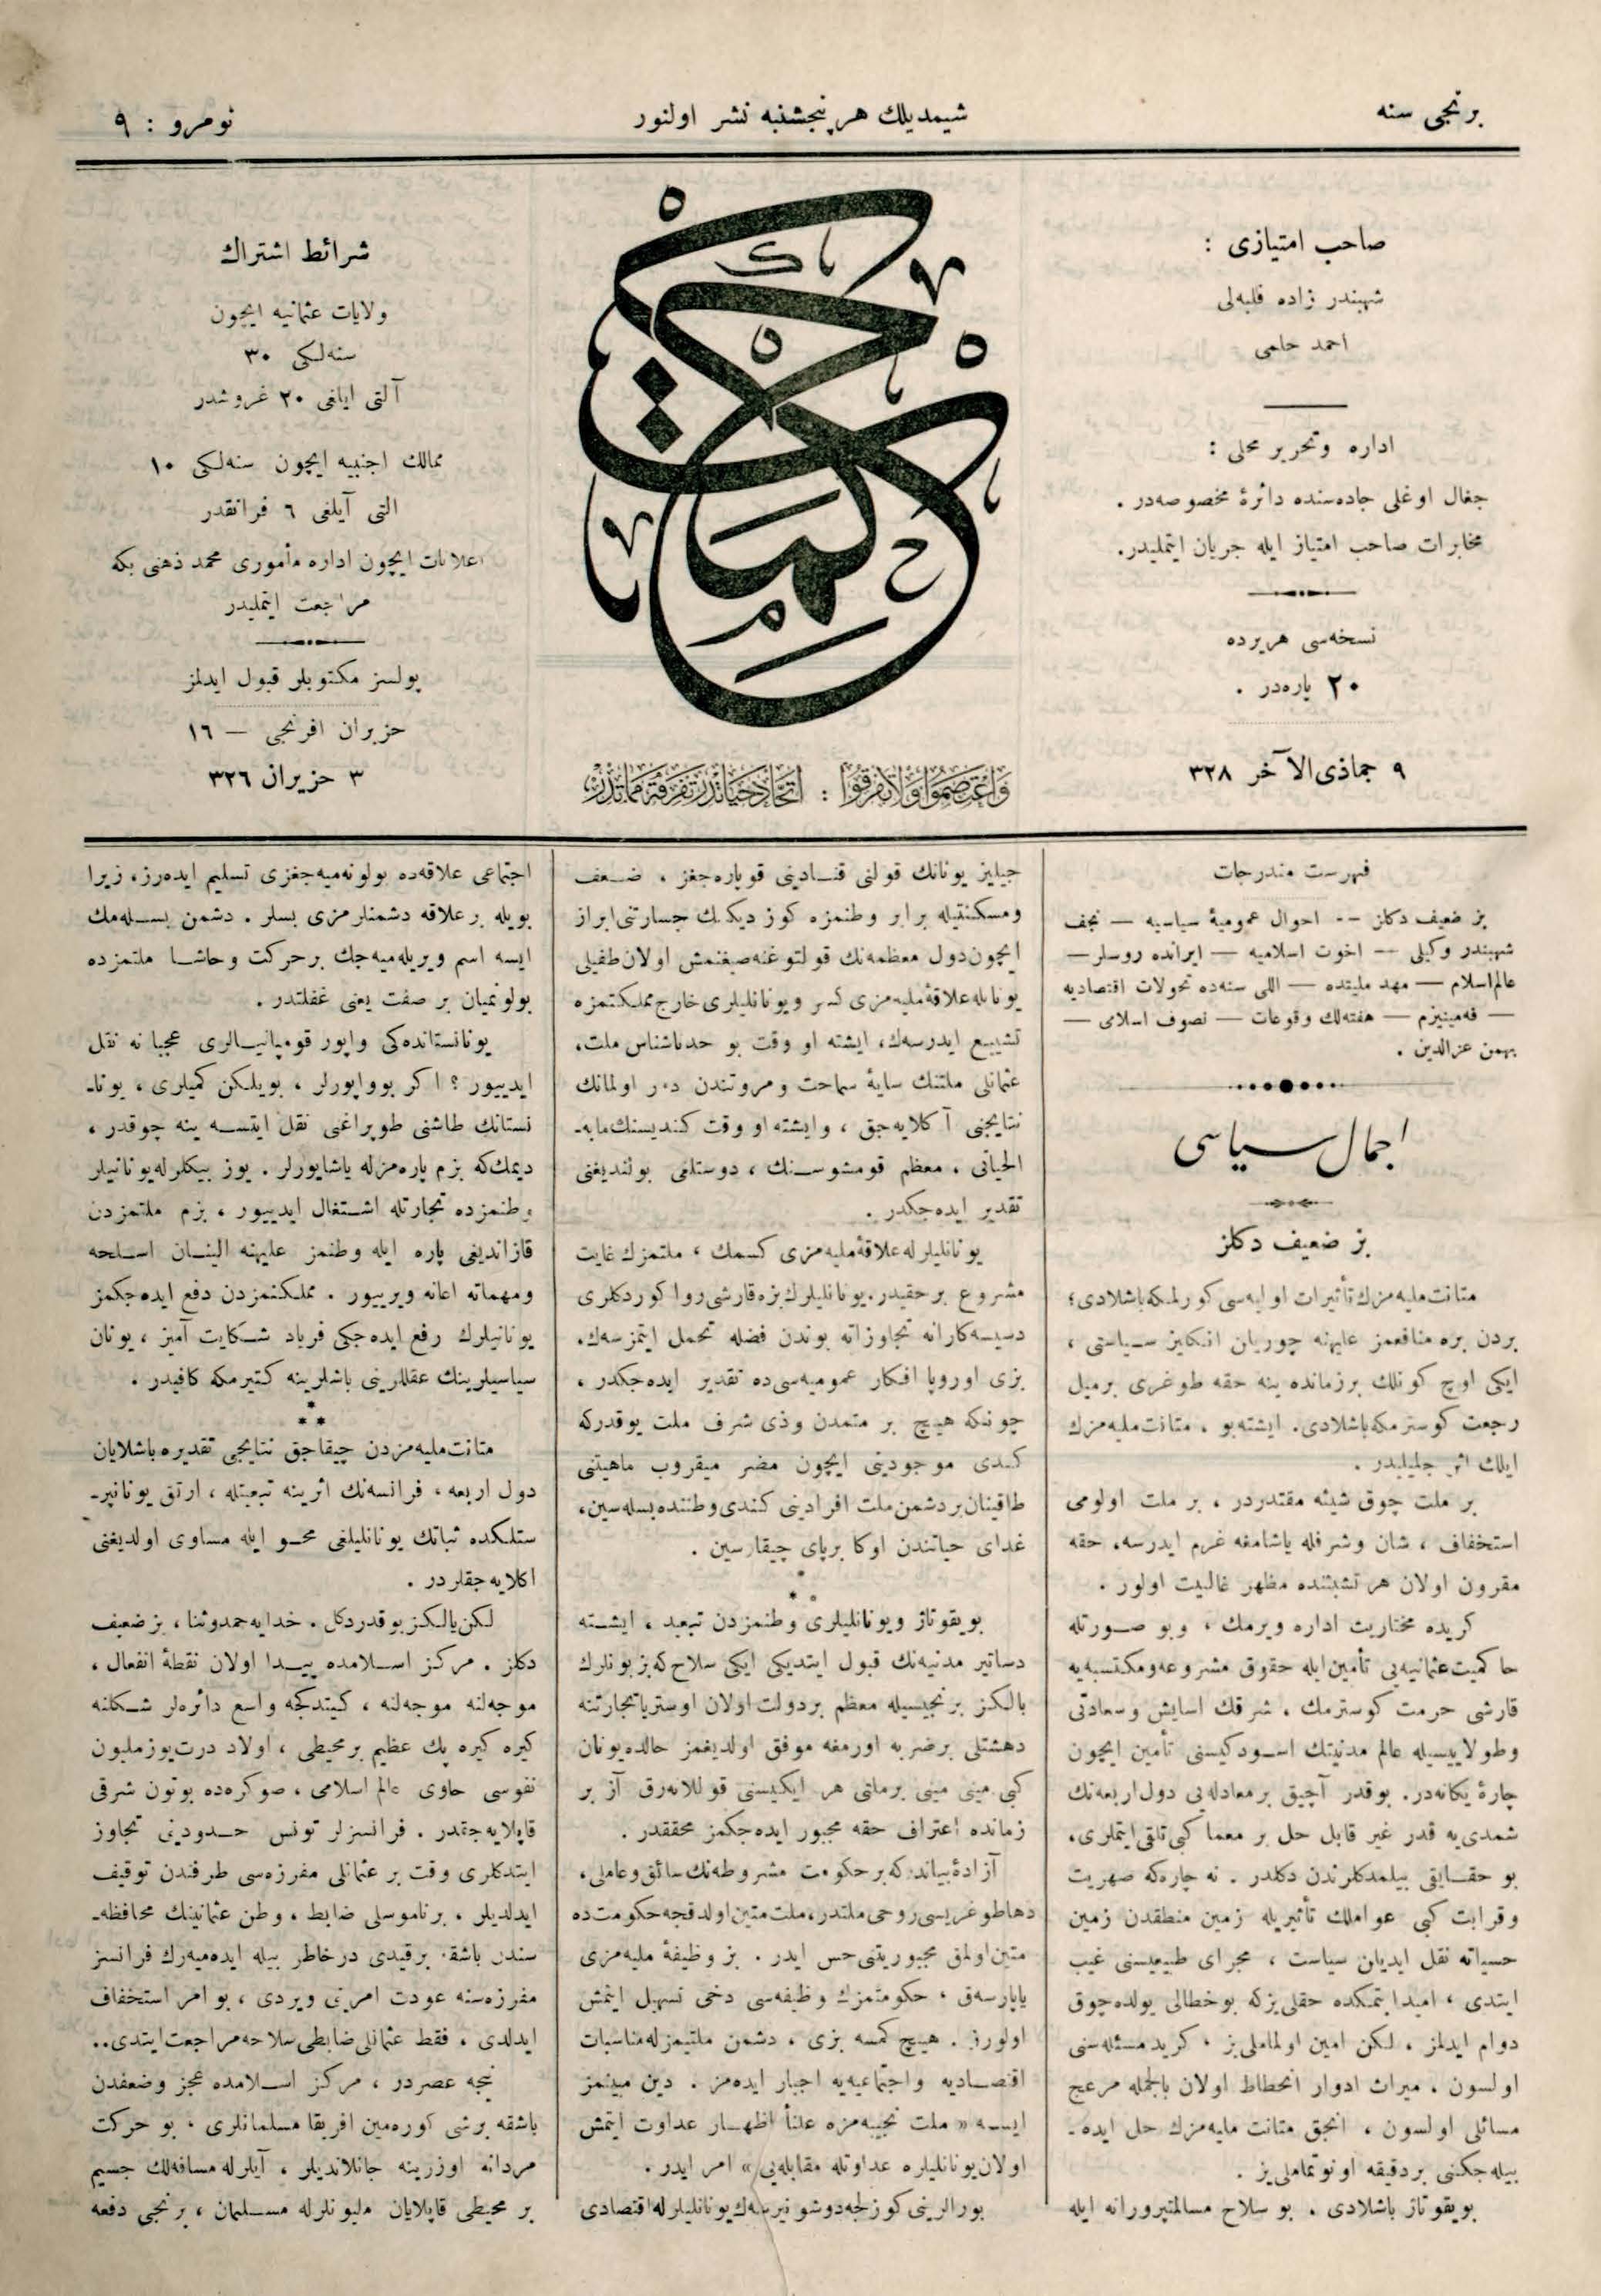 برنجی سنه
شیمدیلك هر پنجشنبه نشر اولنور
نومرو : ٩
صاحب امتیازی :
شهبندر زاده فلبه‌لی
احمد حلمی
اداره وتحریر محلی :
جغال اوغلی جاده‌سنده دائرهٔ مخصوصه‌در .
مخابرات صاحب امتیاز ایله جریان ایتملیدر.
نسخه‌سی هریرده
٢٠ پاره‌در .
٩ جماذی‌الآخر ٣٢٨
حكمت
واعتصموا ولا تفرقوا : اتحاد حیاتدر تفرقه مماتدر
شرائط اشتراك
ولایات عثمانیه ایچون
سنه‌لكی ٣٠
آلتی ایلغی ٢٠ غروشدر
ممالك اجنبیه ایچون سنه‌لكی ١٠
التی آیلغی ٦ فرانقدر
اعلانات ایچون اداره مأموری محمد ذهنی بكه
مراجعت ایتملیدر
پولسز مكتوبلر قبول ایدلمز
حزیران افرنجی — ١٦
٣ حزیران ٣٢٦
فهرست مندرجات
بز ضعیف دكلز -- احوال عمومیهٔ سیاسیه — نجف
شهبندر وكیلی -- اخوت اسلامیه — ایرانده روسلر —
عالم اسلام — مهد ملیتده — اللی سنه‌ده تحولات اقتصادیه
— فه‌مینیزم — هفته‌لك وقوعات — تصوف اسلامی —
بهمن عزالدین .
اجمال سیاسی
بز ضعیف دكلز
متانت ملیه‌مزك تأثیرات اولیه‌سی كورلمكه باشلادی؛
بردن بره منافعمز علیهنه چوریلن انكلیز سیاستی ،
ایكی اوچ كونلك برزمانده ینه حقه طوغری برمیل
رجعت كوسترمكه باشلادی. ایشته بو ، متانت ملیه‌مزك
ایلك اثر جلیلیدر .
بر ملت چوق شیئه مقتدردر ، بر ملت اولومی
استخفاف ، شان وشرفله یاشامغه عزم ایدرسه، حقه
مقرون اولان هر تشبثنده مظهر غالبیت اولور .
كریده مختاریت اداره ویرمك ، وبو صورتله
حاكمیت عثمانیه‌یی تأمین ایله حقوق مشروعه‌ومكتسبه‌یه
قارشی حرمت كوسترمك ، شرقك اسایش وسعادتی
وطولاییسیله عالم مدنیتك اسوده‌كیسنی تأمین ایچون
چارهٔ یكانه‌در. بوقدر آچیق برمعادله‌یی دول اربعه‌نك
شمدی‌یه قدر غیر قابل حل بر معما كبی تلقی ایتملری،
بو حقایقی بیلمدكلرندن دكلدر . نه چاره‌كه صهریت
وقرابت كبی عوامللك تأثیریله زمین منطقدن زمین
حسیاته نقل ایدیلن سیاست ، مجرای طبیعیسنی غیب
ایتدی ، امیدایتمكده حقلی‌یزكه بوخطالی یولده چوق
دوام ایدلمز . لكن امین اولمالی‌یز ، كرید مسئله‌سنی
اولسون ، میراث ادوار انحطاط اولان بالجمله مزعج
مسائلی اولسون ، انجق متانت ملیه‌مزك حل ایده -
بیله‌جكنی بردقیقه اونوتمامالی‌یز .
بویقوتاژ باشلادی . بو سلاح مسالمتپرورانه ایله
جیلیز یونانك قولنی قنادینی قوپاره‌جغز ، ضعف
ومسكنتیله برابر وطنمزه كوز دیكمك جسارتنی ابراز
ایچون دول معظمه‌نك قولتوغنه صیغنمش اولان طفیلی
یونانله علاقهٔ ملیه‌مزی كسر ویونانلیلری خارج مملكتمزه
تشییع ایدرسه‌ك، ایشته او وقت بو حدناشناس ملت،
عثمانلی ملتنك سایهٔ سماحت ومروتندن دور اولمانك
نتایجنی آكلایه‌جق ، وایشته او وقت كندیسنك مابه‌ـ
الحیاتی ، معظم قومشوسنك ، دوستلغی بولندیغنی
تقدیر ایده‌جكدر .
یونانلیلرله علاقهٔ ملیه‌مزی كسمك ، ملتمزك غایت
مشروع برحقیدر. یونانلیلرك بزه قارشی روا كوردكلری
دسیسه‌كارانه تجاوزاته بوندن فضله تحمل ایتمزسه‌ك،
بزی اوروپا افكار عمومیه‌سی ده تقدیر ایده‌جكدر ،
چونكه هیچ بر متمدن وذی شرف ملت یوقدركه
كندی موجودیتی ایچون مضر میقروب ماهیتنی
طاقینان بردشمن ملت افرادینی كندی وطننده بسله‌سین،
غدای حیاتندن اوكا برپای چیقارسین .
بویقوتاژ ویونانلیلری وطنمزدن تبعید ، ایشته
دساتیر مدنیه‌نك قبول ایتدیكی ایكی سلاح كه بز بونلرك
یالكز برنجیسیله معظم بردولت اولان اوستریا تجارتنه
دهشتلی برضربه اورمغه موفق اولدیغمز حالده یونان
كبی مینی مینی برملتی هر ایكیسنی قوللانه‌رق آز بر
زمانده اعتراف حقه مجبور ایده‌جكمز محققدر .
آزادهٔ بیاندركه برحكومت مشروطه‌نك سائق وعاملی،
دهاطوغریسی روحی ملتدر، ملت متین اولدقجه حكومت ده
متین اولمق مجبوریتنی حس ایدر . بز وظیفهٔ ملیه‌مزی
یاپارسه‌ق ، حكومتمزك وظیفه‌سی دخی تسهیل ایتمش
اولورز . هیچ كمسه بزی ، دشمن ملتیمزله مناسبات
اقتصادیه واجتماعیه‌یه اجبار ایده‌مز . دین مبینمز
ایسه « ملت نجیبه‌مزه علناً اظهار عداوت ایتمش
اولان یونانلیلره عداوتله مقابله‌یی » امر ایدر .
بورالرینی كوزلجه دوشونیرسه‌ك یونانلیلرله اقتصادی
اجتماعی علاقه‌ده بولونه‌میه‌جغزی تسلیم ایده‌رز، زیرا
بویله بر علاقه دشمنلرمزی بسلر . دشمن بسله‌مك
ایسه اسم ویریله‌میه‌جك برحركت وحاشا ملتمزده
بولونمیان بر صفت یعنی غفلتدر .
یونانستانده‌كی واپور قومپانیه‌لری عجبا نه نقل
ایدییور ؟ اكر بوواپورلر ، بویلكن كمیلری ، یونا-
نستانك طاشنی طوپراغنی نقل ایتسه ینه چوقدر ،
دیمك‌كه بزم پاره‌مزله یاشایورلر . یوز بیكلرله یونانیلر
وطنمزده تجارتله اشتغال ایدییور ، بزم ملتمزدن
قازاندیغی پاره ایله وطنمز علیهنه الینان اسلحه
ومهماته اعانه ویرییور . مملكتمزدن دفع ایده‌جكمز
یونانیلرك رفع ایده‌جكی فریاد شكایت آمیز ، یونان
سیاسیلرینك عقللرینی باشلرینه كتیرمكه كافیدر .
متانت ملیه‌مزدن چیقاجق نتایجی تقدیره باشلایان
دول اربعه ، فرانسه‌نك اثرینه تبعیتله ، ارتق یونانپر-
ستلكده ثباتك یونانلیلغی محو ایله مساوی اولدیغنی
اكلایه‌جقلردر .
لكن یالكز بوقدر دكل . خدایه حمدوثنا ، بز ضعیف
دكلز . مركز اسلامده پیدا اولان نقطهٔ انفعال ،
موجه‌لنه موجه‌لنه ، كیتدكجه واسع دائره‌لر شكلنه
كیره كیره پك عظیم برمحیطی ، اولاد درت‌یوز ملیون
نفوسی حاوی عالم اسلامی ، صوكره‌ده بوتون شرقی
قاپلایه‌جقدر . فرانسزلر تونس حدودینی تجاوز
ایتدكلری وقت بر عثمانلی مفرزه‌سی طرفندن توقیف
ایدلدیلر . برناموسلی ضابط ، وطن عثمانینك محافظه‌ـ
سندن باشقه برقیدی درخاطر بیله ایده‌میه‌رك فرانسز
مفرزه‌سنه عودت امرنی ویردی ، بو امر استخفاف
ایدلدی ، فقط عثمانلی ضابطی سلاحه مراجعت ایتدی..
نیجه عصردر ، مركز اسلامده عجز وضعفدن
باشقه برشی كوره‌مین افریقا مسلمانلری ، بو حركت
مردانه اوزرینه جانلاندیلر ، آیلرله مسافه‌لك جسیم
بر محیطی قاپلایان ملیونلرله مسلمان ، برنجی دفعه